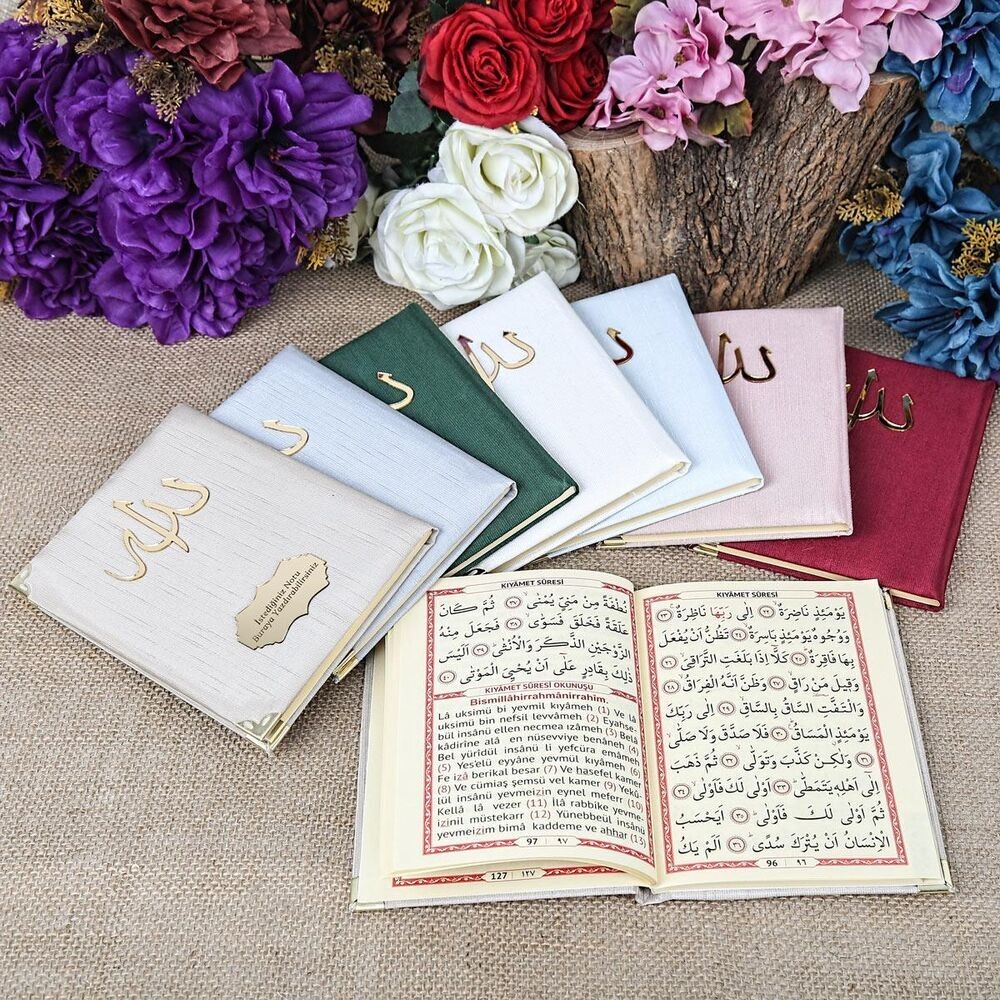 الله
İstediğiniz Notu
Buraya Yazdırabilirsiniz
KIYÂMET SÛRESİ
يَوْمَئِذٍ نَاضِرَةٌ ﴿٢٢﴾ اِلٰى رَبِّهَا نَاظِرَةٌ ﴿٢٣﴾
وَوُجُوهٌ يَوْمَئِذٍ بَاسِرَةٌ ﴿٢٤﴾ تَظُنُّ اَنْ يُفْعَلَ
بِهَا فَاقِرَةٌ ﴿٢٥﴾ كَلَّا اِذَا بَلَغَتِ التَّرَاقِىَ ﴿٢٦﴾
وَقِيلَ مَنْ رَاقٍ ﴿٢٧﴾ وَظَنَّ اَنَّهُ الْفِرَاقُ ﴿٢٨﴾
وَالْتَفَّتِ السَّاقُ بِالسَّاقِ ﴿٢٩﴾ اِلٰى رَبِّكَ
يَوْمَئِذٍ الْمَسَاقُ ﴿٣٠﴾ فَلَا صَدَّقَ وَلَا صَلّٰى
﴿٣١﴾ وَلٰكِنْ كَذَّبَ وَتَوَلّٰى ﴿٣٢﴾ ثُمَّ ذَهَبَ
اِلٰى اَهْلِهٖ يَتَمَطّٰى ﴿٣٣﴾ اَوْلٰى لَكَ فَاَوْلٰى ﴿٣٤﴾
ثُمَّ اَوْلٰى لَكَ فَاَوْلٰى ﴿٣٥﴾ اَيَحْسَبُ
الْاِنْسَانُ اَنْ يُتْرَكَ سُدًى ﴿٣٦﴾ اَلَمْ يَكُ
96 | ٩٦
KIYÂMET SÛRESİ
نُطْفَةً مِنْ مَنِيٍّ يُمْنٰى ﴿٣٧﴾ ثُمَّ كَانَ
عَلَقَةً فَخَلَقَ فَسَوّٰى ﴿٣٨﴾ فَجَعَلَ مِنْهُ
الزَّوْجَيْنِ الذَّكَرَ وَالْاُنْثٰى ﴿٣٩﴾ اَلَيْسَ
ذٰلِكَ بِقَادِرٍ عَلٰٓى اَنْ يُحْيِىَ الْمَوْتٰى ﴿٤٠﴾
KIYÂMET SÛRESİ OKUNUŞU
Bismillâhirrahmânirrahîm.
Lâ uksimü bi yevmil kıyâmeh (1) Ve lâ
uksimü bin nefsil levvâmeh (2) Eyahse-
bül insânü ellen necmea ızâmeh (3) Belâ
kâdirîne alâ en nüsevviye benâneh (4)
Bel yürîdül insânü li yefcüra emâmeh
(5) Yes'elü eyyâne yevmül kıyâmeh (6)
Fe izâ berikal besar (7) Ve hasefel kamer
(8) Ve cümiaş şemsü vel kamer (9) Yekû-
lül insânü yevmeizin eynel meferr (10)
Kellâ lâ vezer (11) İlâ rabbike yevme-
izinil müstekarr (12) Yünebbeül insânü
yevmeizim bimâ kaddeme ve ahhar (13)
97 | ٩٧
127 | ١٢٧